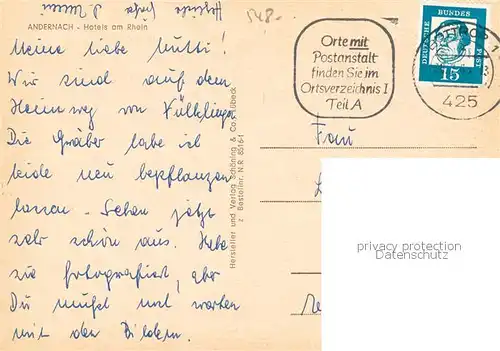 ANDERNACH - Hotels am Rhein
Herzliche Grüße
Meine liebe Mutti!
Wir sind auf dem
Heimweg von Völklingen
Die Gräber habe ich
beide neu bepflanzen
lassen - Sehen jetzt
sehr schön aus. Habe
sie fotografiert, aber
Du mußt noch warten
mit den Bildern.
Hersteller und Verlag Schöning & Co., Lübeck
Bestellnr. N.R. 8516-1
548.-
Orte mit
Postanstalt
finden Sie im
Ortsverzeichnis I
Teil A
DEUTSCHE
BUNDES
POST
15
425
Frau
privacy protection
Datenschutz